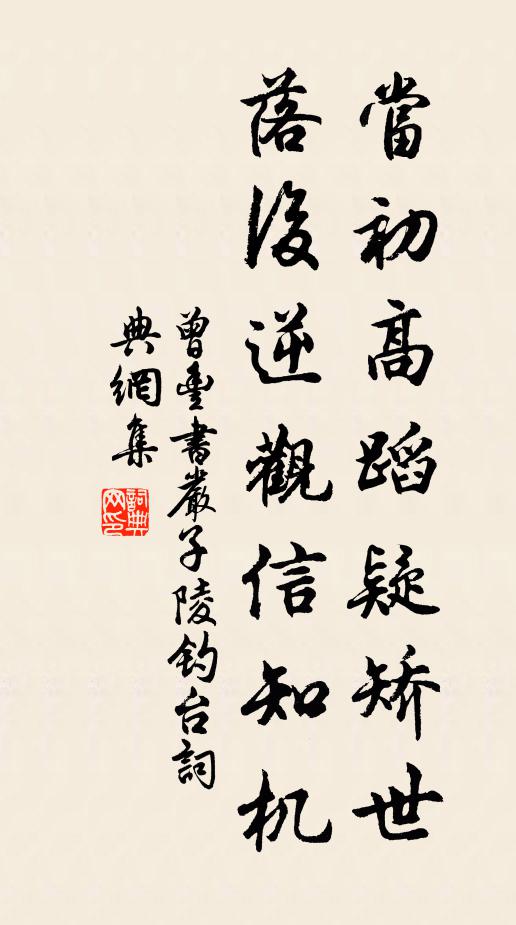 當初高蹈疑矯世
落後逆觀信知机
曾豐書嚴子陵釣台詞
典網集
詞典網印